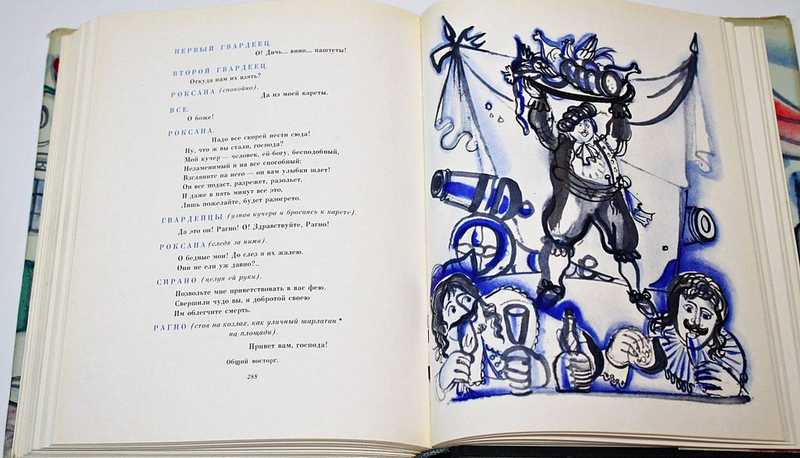 ПЕРВЫЙ ГВАРДЕЕЦ.
О! Дичь... вино... паштеты!
ВТОРОЙ ГВАРДЕЕЦ.
Откуда нам их взять?
РОКСАНА (спокойно).
Да из моей кареты.
ВСЕ.
О боже!
РОКСАНА.
Надо все скорей нести сюда!
Ну, что ж вы стали, господа?
Мой кучер — человек, ей-богу, бесподобный,
Незаменимый и на все способный;
Взгляните на него — он вам улыбки шлет!
Он все подаст, разрежет, разольет,
И даже в пять минут все это,
Лишь пожелайте, будет разогрето.
ГВАРДЕЙЦЫ (узнав кучера и бросаясь к карете).
Да это он! Рагно! О! Здравствуйте, Рагно!
РОКСАНА (следя за ними).
О бедные мои! До слез я их жалею.
Они не ели уж давно?..
СИРАНО (целуя ей руки).
Позвольте мне приветствовать в вас фею.
Свершили чудо вы, и добротой своею
Им облегчите смерть.
РАГНО (стоя на козлах, как уличный шарлатан*
на площади).
Привет вам, господа!
Общий восторг.
288